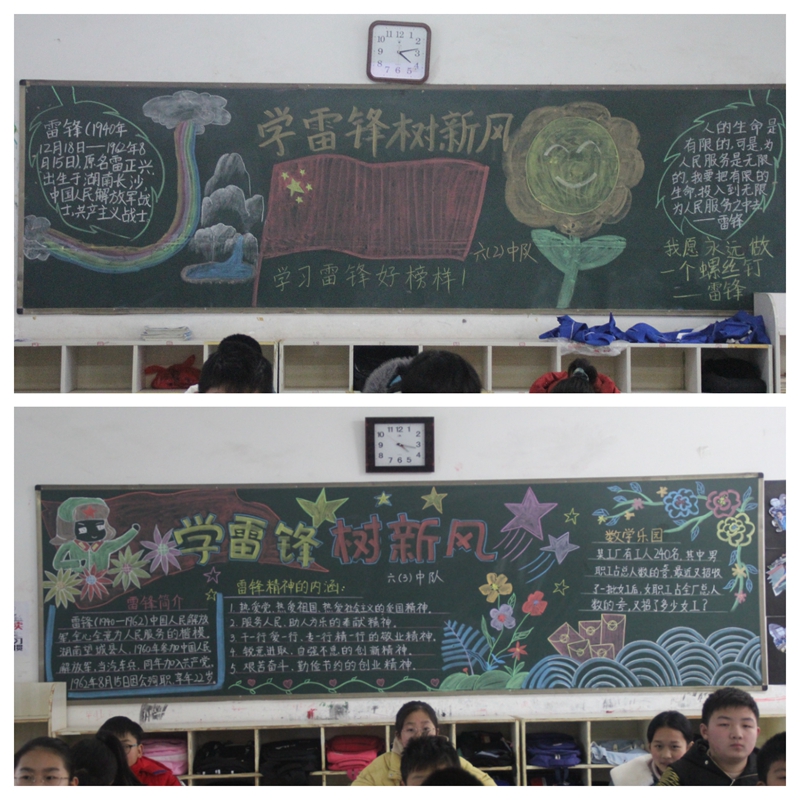 学雷锋树新风
雷锋(1940年
12月18日——1962年8
月15日),原名雷正兴,
出生于湖南长沙,
中国人民解放军战
士,共产主义战士
学习雷锋好榜样!
六(2)中队
人的生命是
有限的,可是,为
人民服务是无限
的,我要把有限的
生命,投入到无限
为人民服务之中去
——雷锋
我愿永远做
一个螺丝钉
——雷锋
学雷锋 树新风
六(3)中队
雷锋简介
雷锋(1940—1962)中国人民解放
军,全心全意为人民服务的楷模,
湖南望城县人,1960年参加中国人民
解放军,当汽车兵,同年加入共产党,
1962年8月15日因公殉职,享年22岁
雷锋精神的内涵:
1.热爱党,热爱祖国,热爱社会主义的爱国精神.
2.服务人民、助人为乐的奉献精神.
3.干一行爱一行、专一行精一行的敬业精神.
4.锐意进取、自强不息的创新精神.
5.艰苦奋斗、勤俭节约的创业精神.
数学乐园
某工厂有工人240名,其中男
职工占总人数的 最近又招收
了一批女工后,女职工占全厂总人
数的 又招了多少女工?